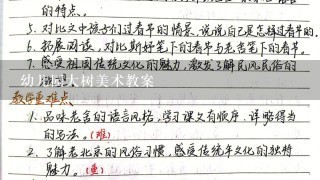 的特点。
5. 对比文中孩子们过春节的情景,说说自己是怎样过春节的。
6. 拓展阅读,对比斯妤笔下的春节与老舍笔下的春节。
7. 感受祖国传统文化的魅力,激发了解民风民俗的
幼儿园大树美术教案
教学重难点
1. 品味老舍的语言风格,学习课文有顺序、详略得当
的写法。(难)
2. 了解老北京的风俗习惯,感受传统年文化的独特
魅力。(重)